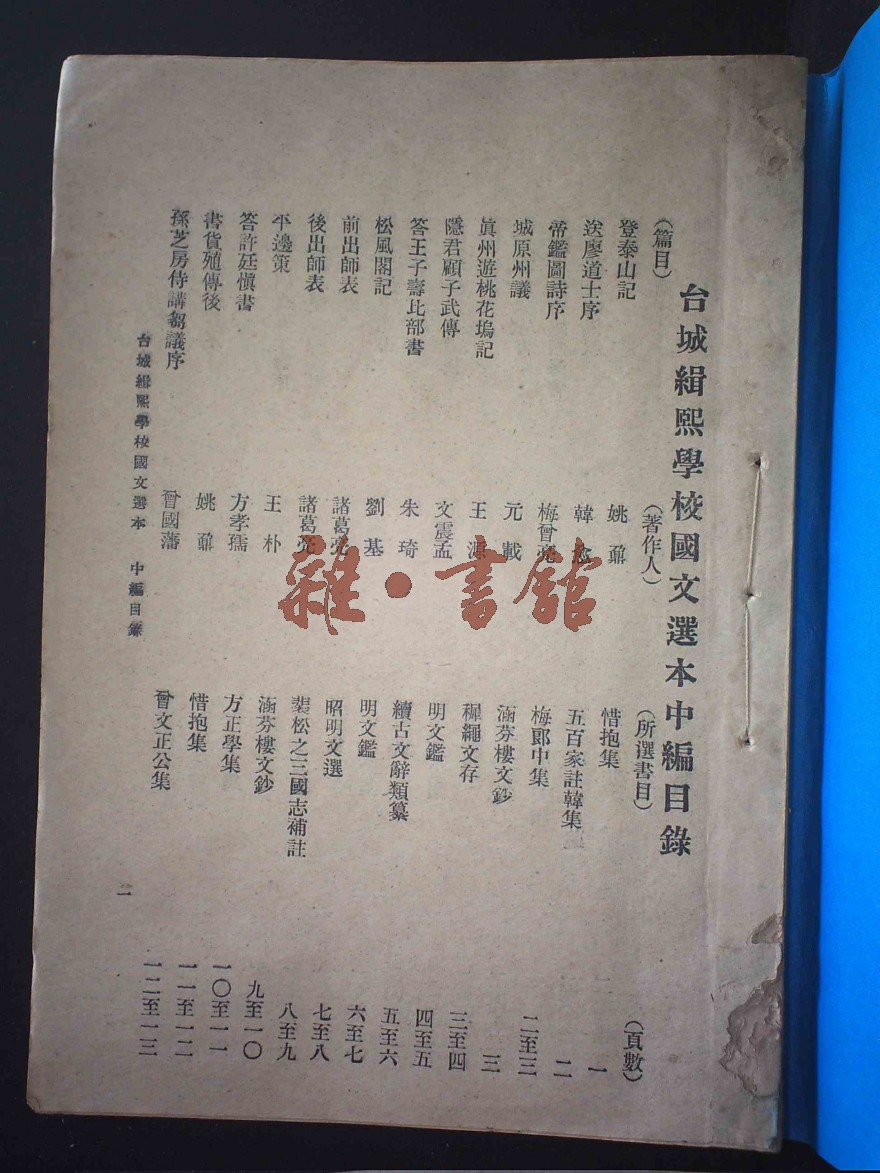 台城緝熙學校國文選本中編目錄
(篇目) (著作人) (所選書目) (頁數)
登泰山記 姚鼐 惜抱集 一
送廖道士序 韓愈 五百家註韓集 二
帝鑑圖詩序 梅曾亮 梅郎中集 二至三
城原州議 元載 涵芬樓文鈔 三
眞州遊桃花塢記 王源 穉繩文存 三至四
隱君顧子武傳 文震孟 明文鑑 四至五
答王子壽比部書 朱琦 續古文辭類纂 五至六
松風閣記 劉基 明文鑑 六至七
前出師表 諸葛亮 昭明文選 七至八
後出師表 諸葛亮 裴松之三國志補註 八至九
平邊策 王朴 涵芬樓文鈔 九至一〇
答許廷愼書 方孝孺 方正學集 一〇至一一
書貨殖傳後 姚鼐 惜抱集 一一至一二
孫芝房侍講芻議序 曾國藩 曾文正公集 一二至一三
台城緝熙學校國文選本 中編目錄 一
雜·書館